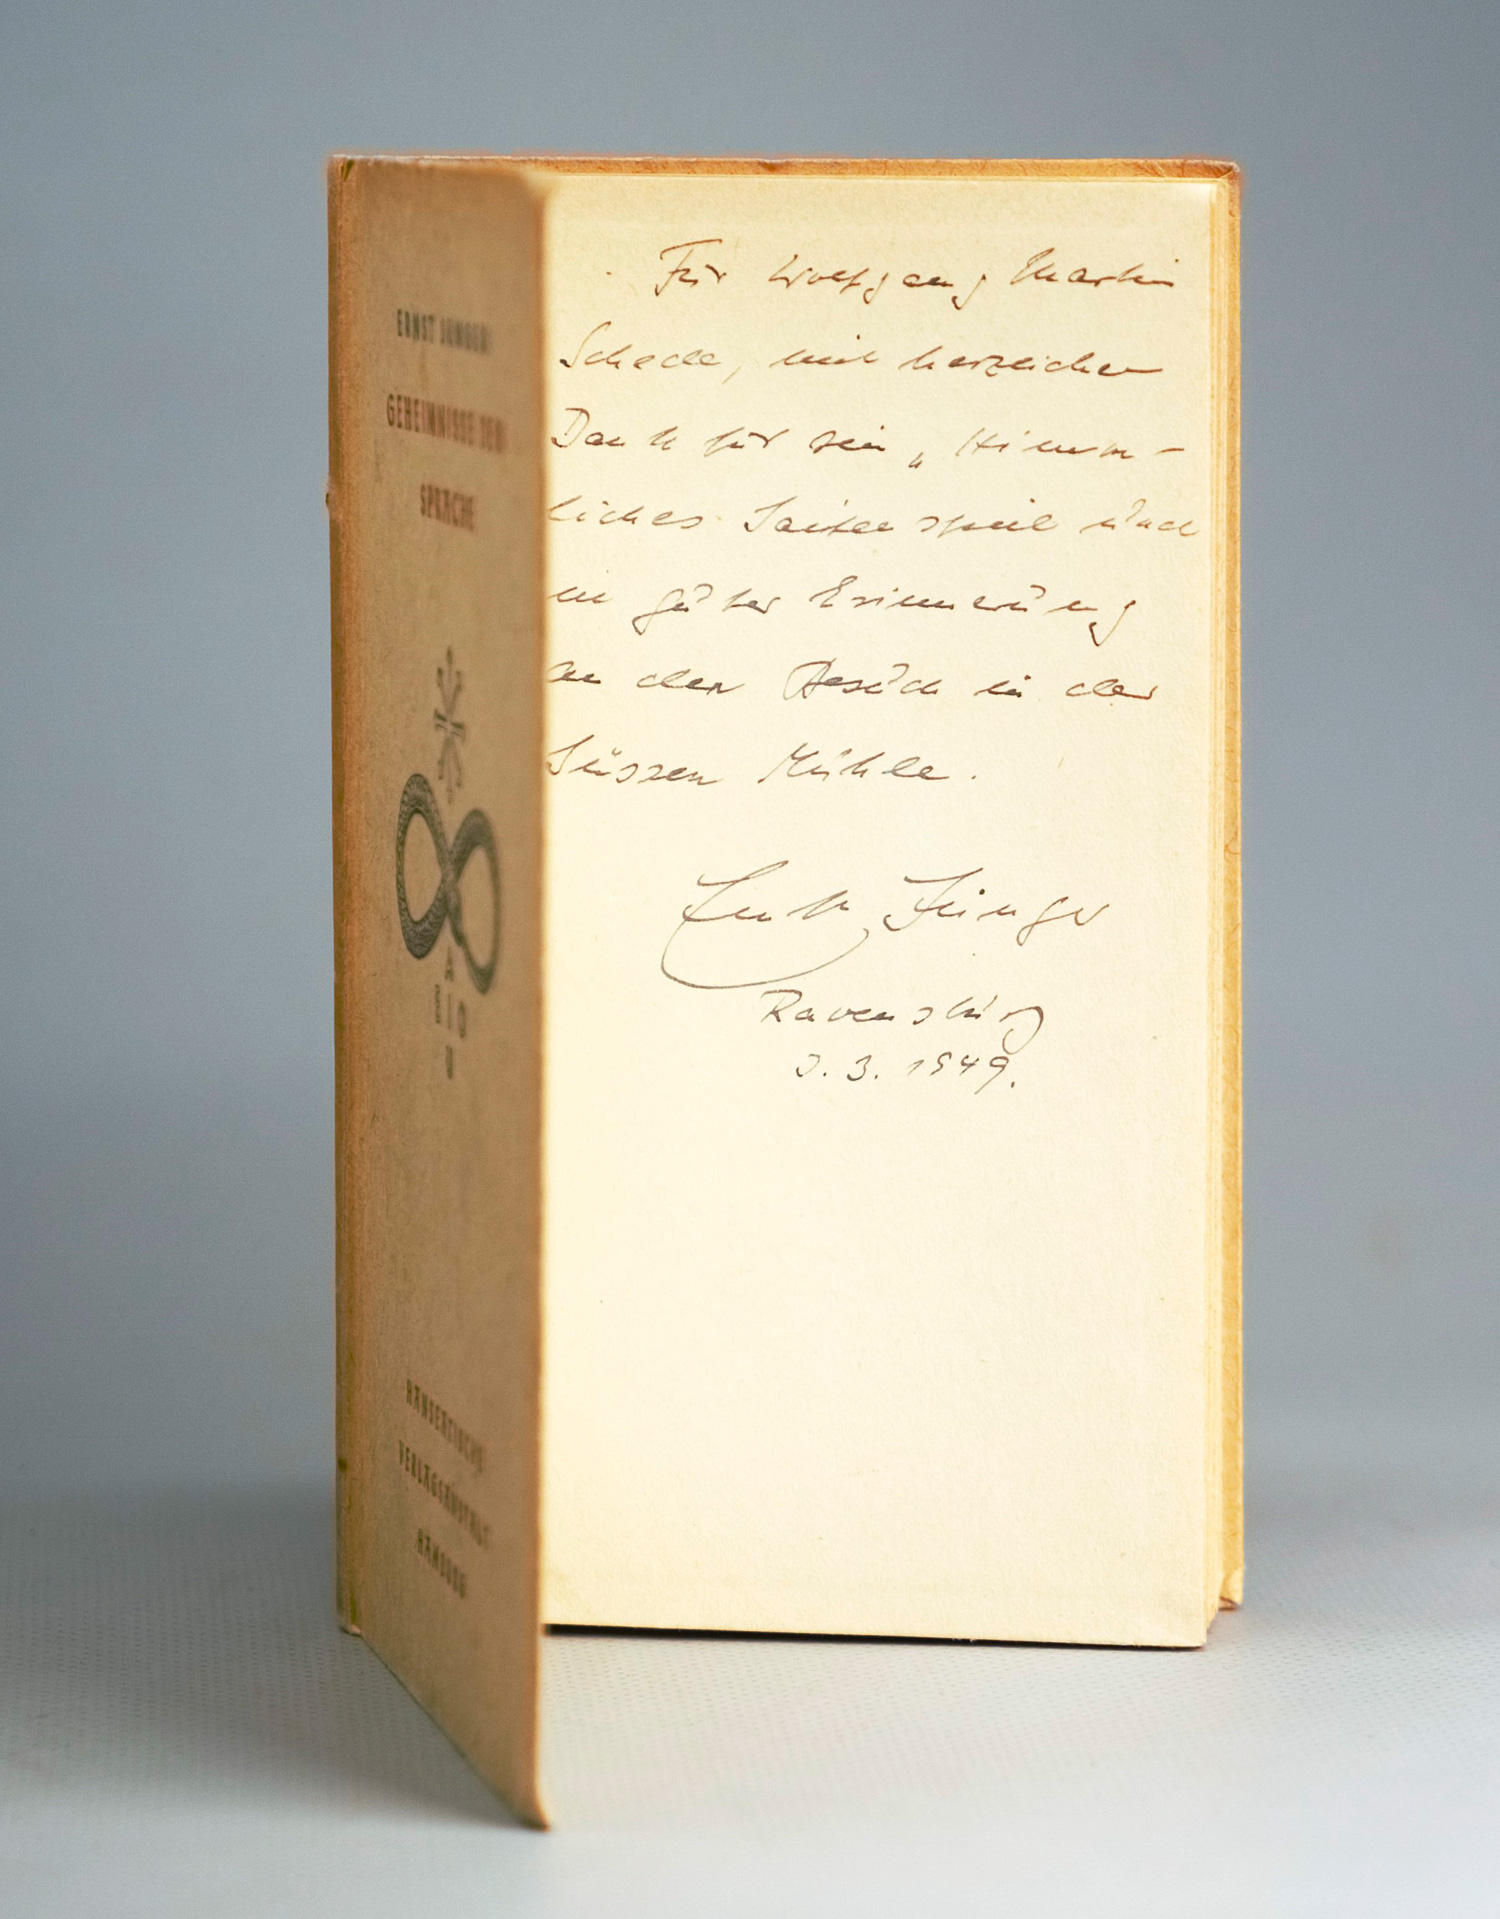 ERNST JÜNGER:
GEHEIMNISSE DER
SPRACHE
A
E I O
U
HANSEATISCHE
VERLAGSANSTALT
HAMBURG
Für Wolfgang Martin
Schede, mit herzlichem
Dank für sein „Himm-
liches Saitenspiel und
in guter Erinnerung
an den Besuch in der
Süssen Mühle.
Ernst Jünger
Ravensburg
3. 1949.